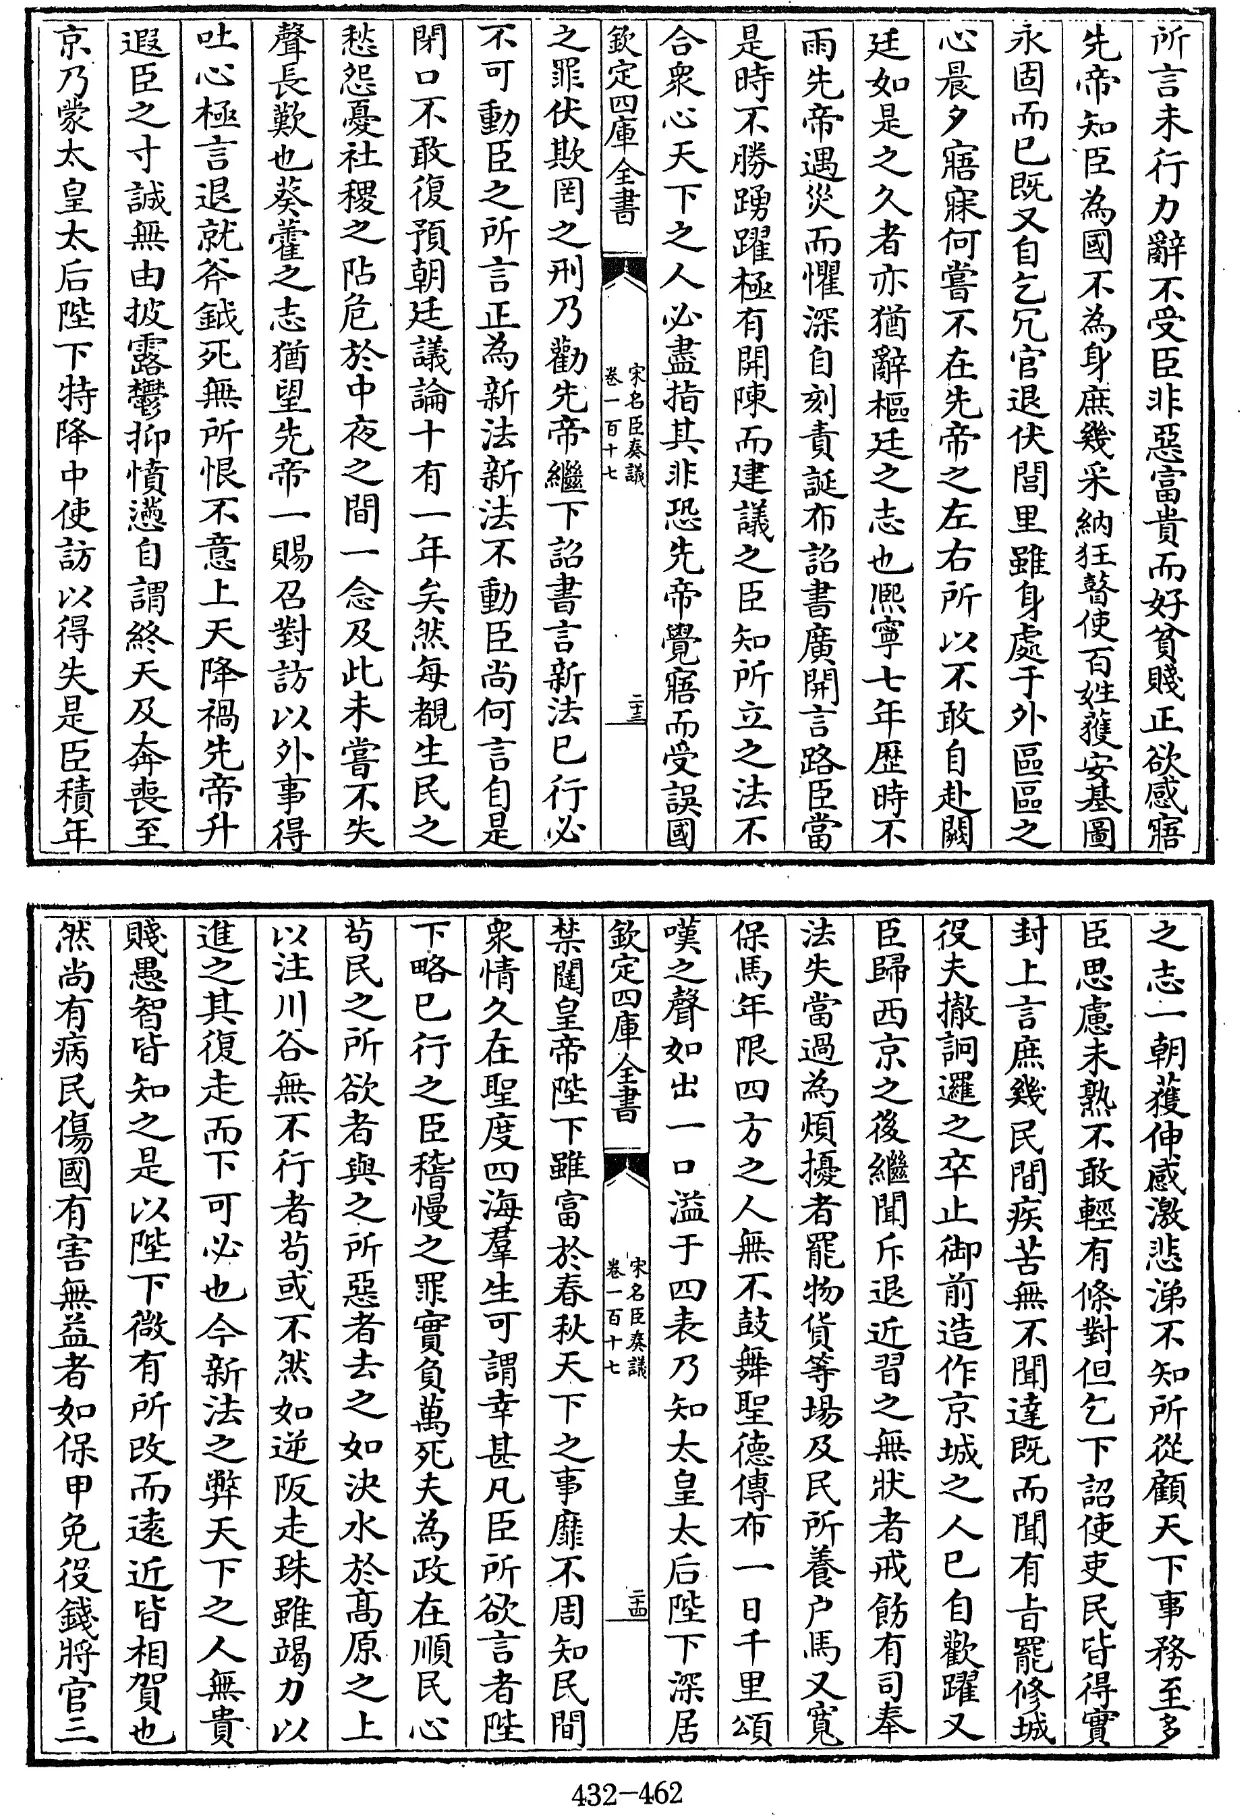 所言未行力辭不受臣非惡富貴而好貧賤正欲感寤
先帝知臣為國不為身庶幾采納狂瞽使百姓蒦安基圖
永固而已既又自乞冗官退伏閭里雖身處于外區區之
心晨夕寤寐何嘗不在先帝之左右所以不敢自赴闕
廷如是之久者亦猶辭樞廷之志也熈寧七年歴時不
雨先帝遇災而懼深自刻責誕布詔書廣開言路臣當
是時不勝踴躍極有開陳而建議之臣知所立之法不
合衆心天下之人必盡指其非恐先帝覺寤而受誤國
欽定四庫全書
宋名臣奏議
卷一百十七
二十三
之罪伏欺罔之刑乃勸先帝繼下詔書言新法已行必
不可動臣之所言正為新法新法不動臣尚何言自是
閉口不敢復預朝廷議論十有一年矣然每覩生民之
愁怨憂社稷之阽危於中夜之間一念及此未嘗不失
聲長歎也葵藿之志猶望先帝一賜召對訪以外事得
吐心極言退就斧鉞死無所恨不意上天降禍先帝升
遐臣之寸誠無由披露鬱抑憤懣自謂終天及奔喪至
京乃蒙太皇太后陛下特降中使訪以得失是臣積年
之志一朝蒦伸感激悲涕不知所從顧天下事務至多
臣思慮未熟不敢輕有條對但乞下詔使吏民皆得實
封上言庶幾民間疾苦無不聞達既而聞有㫖罷修城
役夫撤詗邏之卒止御前造作京城之人已自歡躍又
臣歸西京之後繼聞斥退近習之無狀者戒飭有司奉
法失當過為煩擾者罷物貨等場及民所養户馬又寛
保馬年限四方之人無不鼓舞聖德傳布一日千里頌
嘆之聲如出一口溢于四表乃知太皇太后陛下深居
欽定四庫全書
宋名臣奏議
卷一百十七
二十四
禁闥皇帝陛下雖富於春秋天下之事靡不周知民間
衆情久在聖度四海羣生可謂幸甚凡臣所欲言者陛
下略已行之臣稽慢之罪實負萬死夫為政在順民心
苟民之所欲者與之所惡者去之如決水於髙原之上
以注川谷無不行者苟或不然如逆阪走珠雖竭力以
進之其復走而下可必也今新法之弊天下之人無貴
賤愚智皆知之是以陛下微有所改而逺近皆相賀也
然尚有病民傷國有害無益者如保甲免役錢將官三
432-462